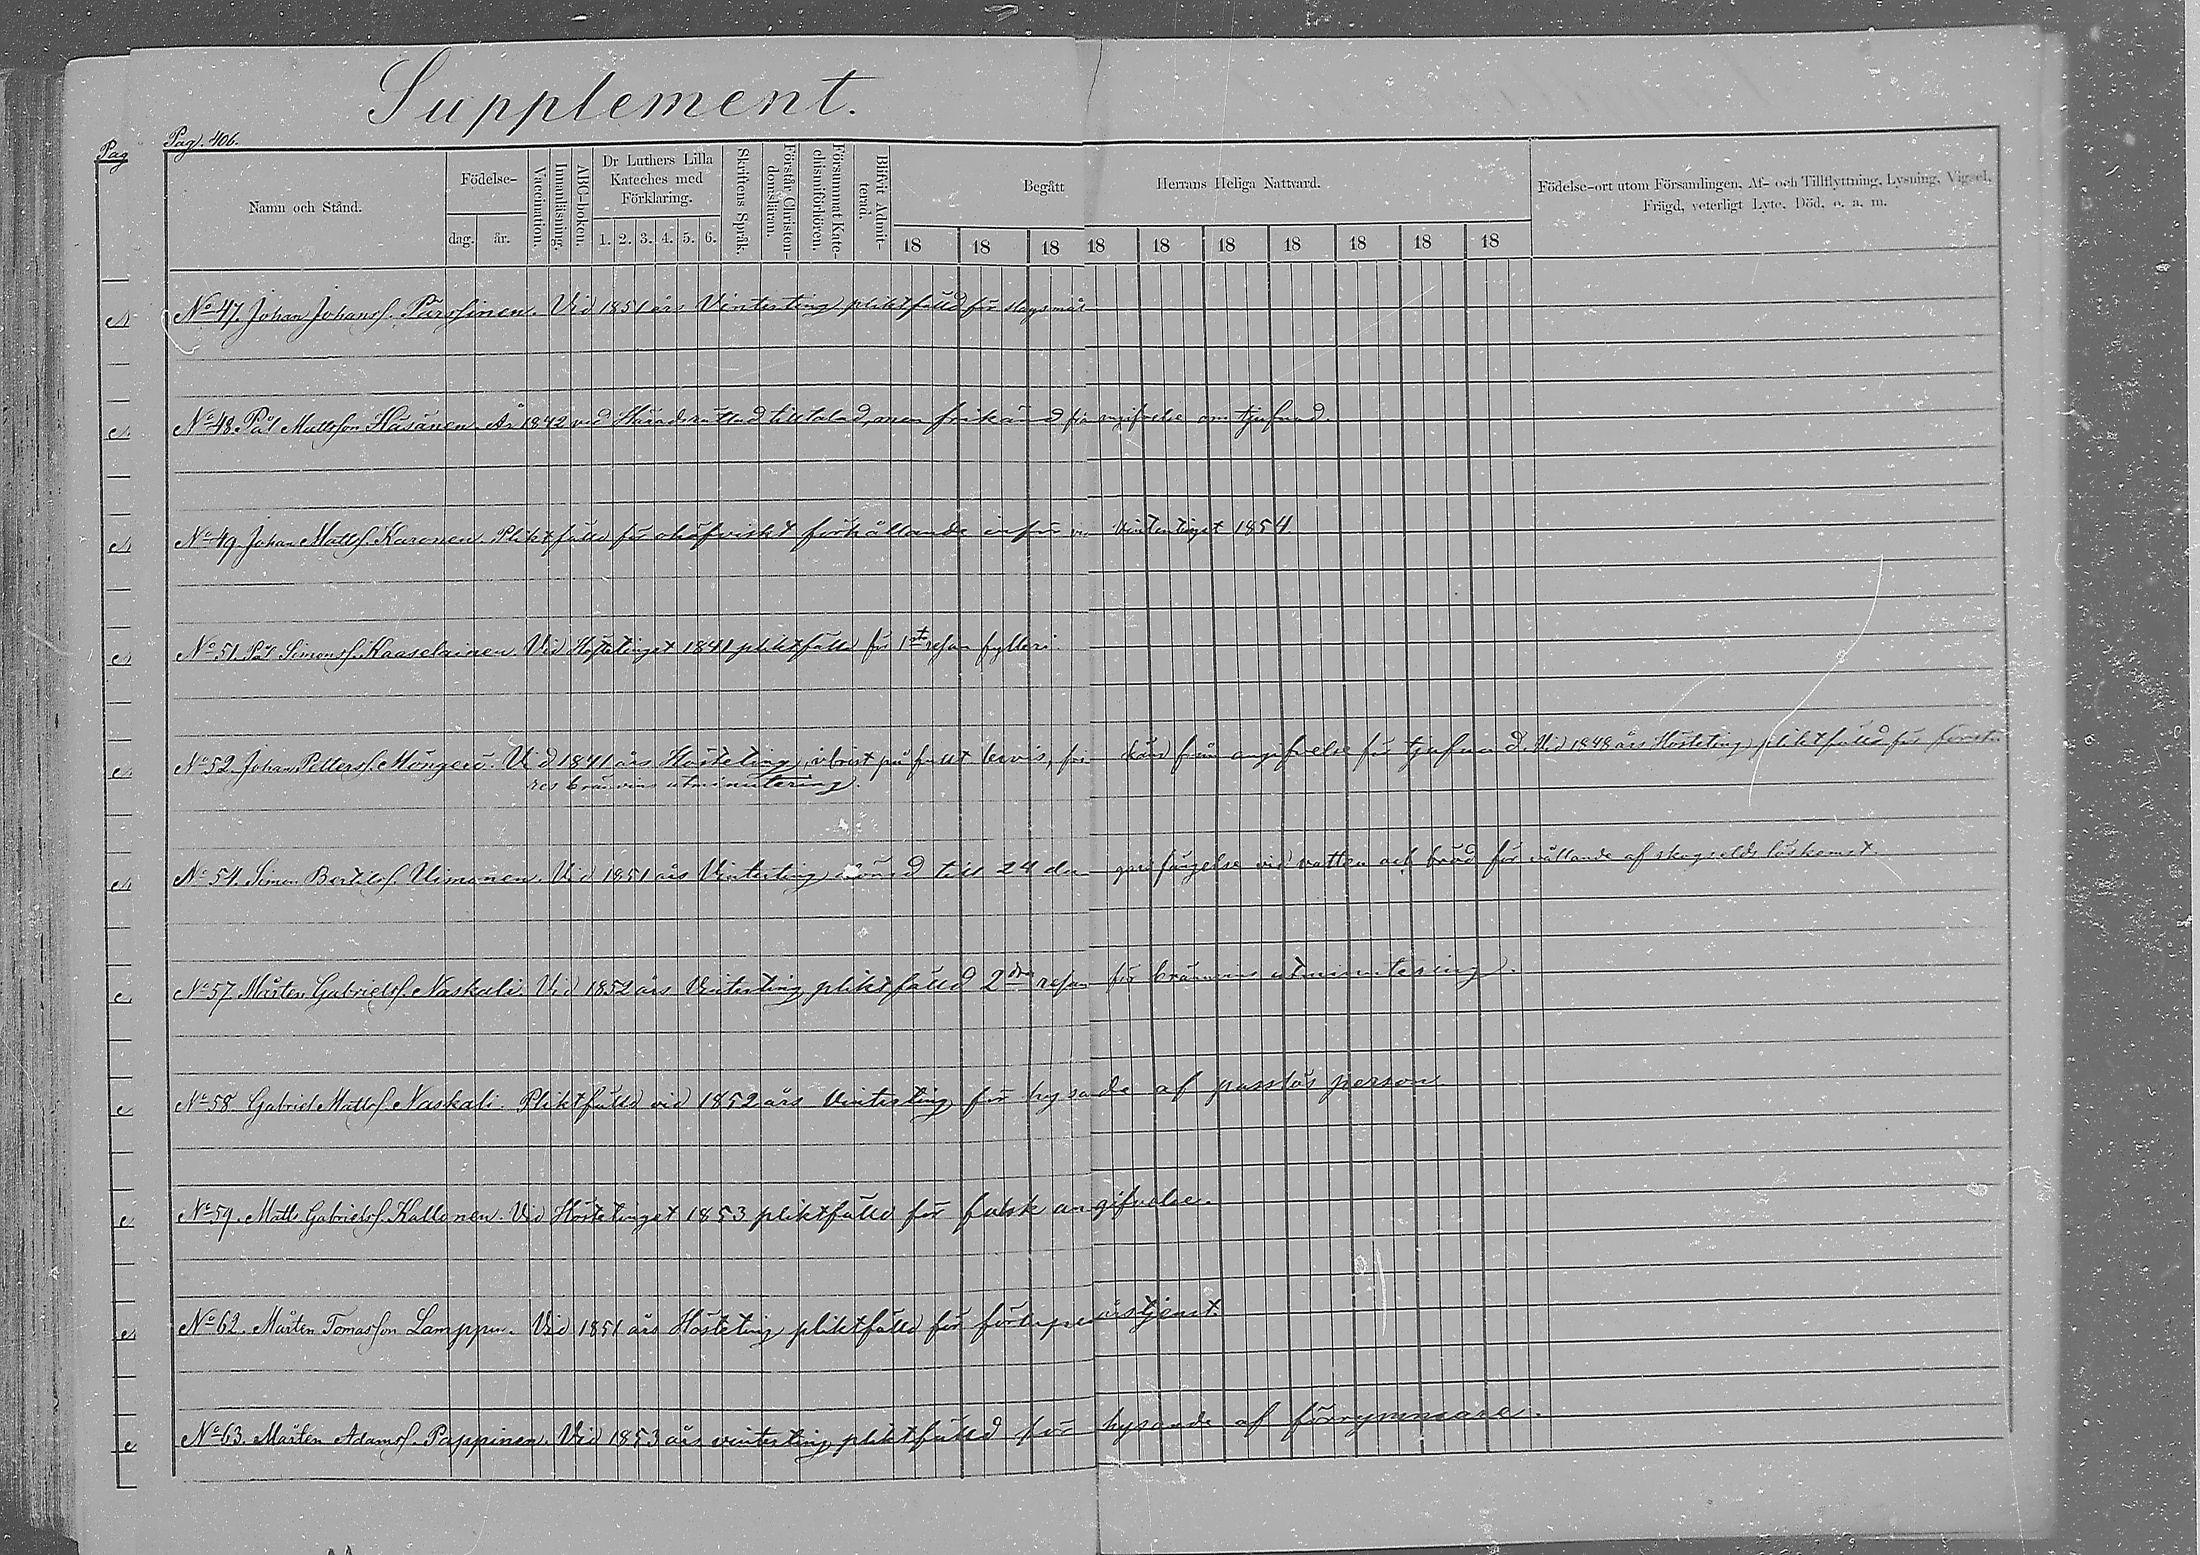 Supplement.
Pag
Pag. 406.
Namn och Stånd.
Födelse-
dag.
år.
Vaccination.
Innanläsning.
ABC-boken
Dr Luthers Lilla
Kateches med
Förklaring.
1. 2. 3. 4. 5. 6.
Skriftens Språk.
Förstår Christen-
domsläran.
Försummat Kate-
chismiförhören.
Blifvit Admit-
terad.
Begått
Herrans Heliga Nattvard.
18 18 18 18 18 18 18 18 18 18
Födelse-ort utom Församlingen, Af- och Tillflyttning, Lysning, Vigsel,
Frägd, veterligt Lyte, Död, e. a. m.
No 47. Johan Johansf. Pärssinen. Vid 1851 års Vinterting pliktfälld för slagsmål
No 48. Pål Mattsson Häsänen. År 1842 vid Häradsrätten tilltalad, men frikänd från angifvelse om tjufnad.
No 49. Johan Mattsf. Karonen. Pliktfälld för ohöfviskt förhållande inför vintertinget 1854.
No 51. Pål Simonsf. Kaaselainen. Vid Hösttinget 1841 pliktfälld för 1sta resan fylleri.
No 52. Johan Pettersf. Möngerö. Vid 1841 års Hösteting, i brist på fullt bevis, frikänd från angifvelse för tjufnad. Vid 1848 års Hösteting pliktfälld för
res bränvins utminutering.
No 54. Simon Bertilsf. Uimonen. Vid 1851 års Vinterting dömd till 24 dagars fängelse vid vatten och bröd för vållande af skogselds löskomst.
No 57. Mårten Gabrielsf. Naskali. Vid 1852 års Vinterting pliktfälld 2dra resan för bränvins utminutering.
No 58. Gabriel Mattsf. Naskali. Pliktfälld vid 1852 års Vinterting för hysande af passlös person.
No 59. Matts Gabrielsf. Kallonen. Vid Höstetinget 1853 pliktfälld för falsk angifvelse.
No 62. Mårten Tomasson Lamppu. Vid 1851 års Hösteting pliktfälld för förlupen årstjenst.
No 63. Mårten Adamsf. Pappinen. Vid 1853 års vinterting pliktfälld för hysande af förrymmare.